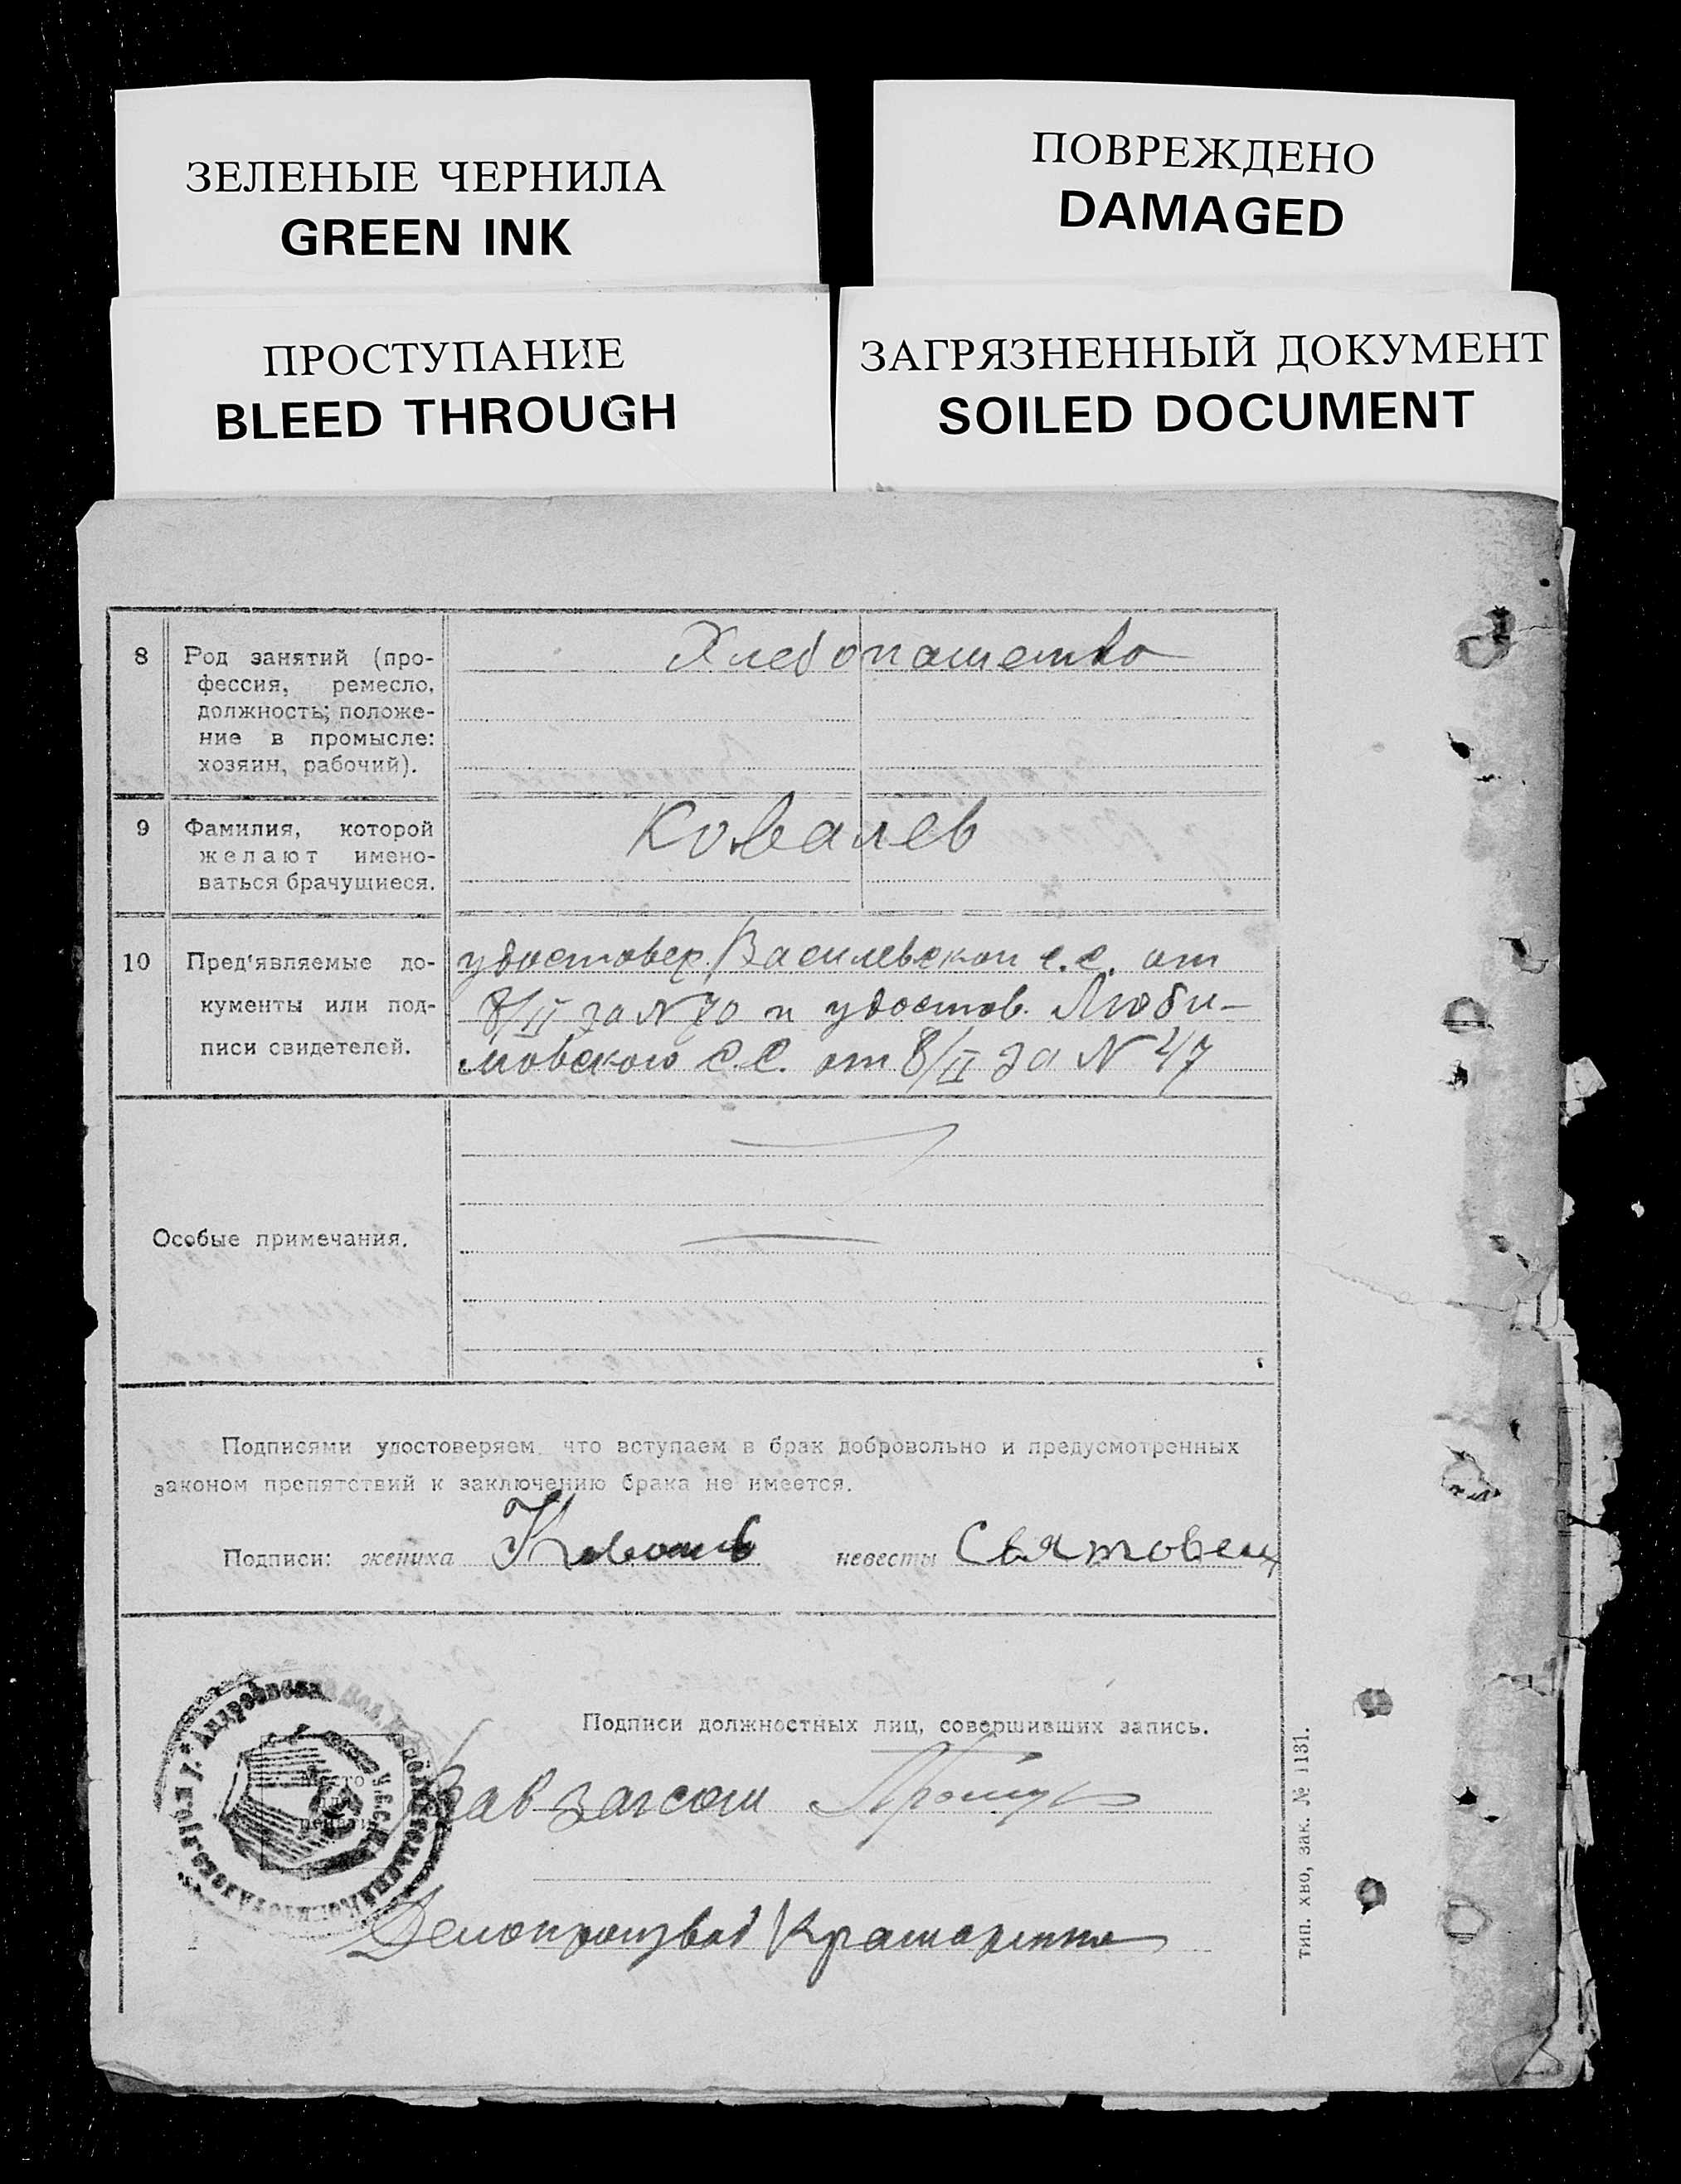 ЗЕЛЕНЫЕ ЧЕРНИЛА
GREEN INK
ПОВРЕЖДЕНО
DAMAGED
ПРОСТУПАНИЕ
BLEED THROUGH
ЗАГРЯЗНЕННЫЙ ДОКУМЕНТ
SOILED DOCUMENT
8 Род занятий (про-
фессия, ремесло,
должность; положе-
ние в промысле:
хозяин, рабочий).
Хлебопашество
9 Фамилия, которой
желают имено-
ваться брачущиеся.
Ковалев
10 Пред'являемые до-
кументы или под-
писи свидетелей.
удостовер. Василевской с.с. от
8/II за N 70 и удостов. Люби-
мовского С.С. от 8/II за N 47
Особые примечания.
Подписями удостоверяем, что вступаем в брак добровольно и предусмотренных
законом препятствий к заключению брака не имеется.
Подписи: жениха Ковалев невесты Святовец
Подписи должностных лиц, совершивших запись.
Зав загсом
Делопроизвод
Место
для
печати
У.С.С.Р.
тип. ХВО, зак. № 1131.